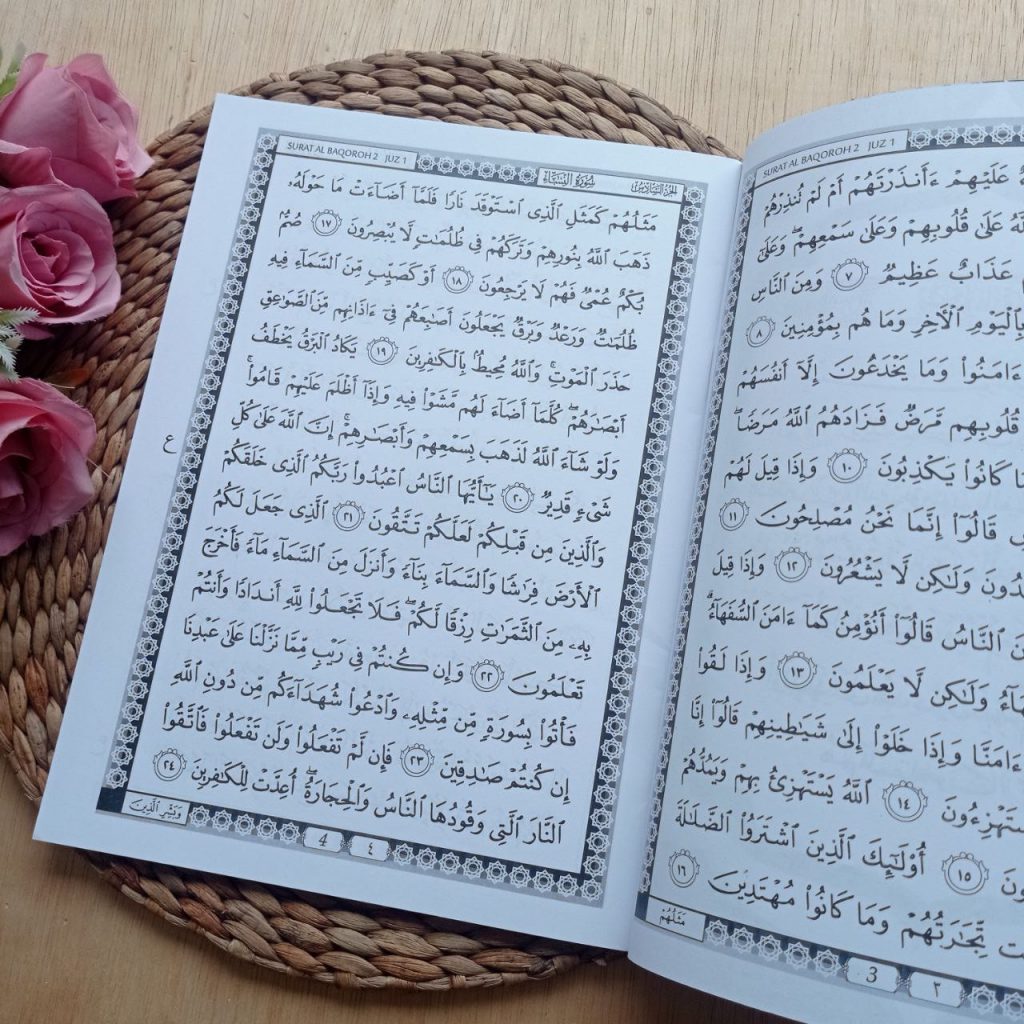 SURAT AL BAQOROH 2 JUZ 1
عَلَيْهِمْ ءَأَنذَرْتَهُمْ أَمْ لَمْ تُنذِرْهُمْ
عَلَىٰ قُلُوبِهِمْ وَعَلَىٰ سَمْعِهِمْ ۖ وَعَلَىٰ
عَذَابٌ عَظِيمٌ ٧ وَمِنَ النَّاسِ
بِالْيَوْمِ الْآخِرِ وَمَا هُم بِمُؤْمِنِينَ ٨
ءَامَنُوا۟ وَمَا يَخْدَعُونَ إِلَّا أَنفُسَهُمْ
قُلُوبِهِم مَّرَضٌ فَزَادَهُمُ اللَّهُ مَرَضًا ۖ
كَانُوا۟ يَكْذِبُونَ ١٠ وَإِذَا قِيلَ لَهُمْ
قَالُوٓا۟ إِنَّمَا نَحْنُ مُصْلِحُونَ ١١
وَلَٰكِن لَّا يَشْعُرُونَ ١٢ وَإِذَا قِيلَ
النَّاسُ قَالُوٓا۟ أَنُؤْمِنُ كَمَآ ءَامَنَ السُّفَهَآءُ ۗ
وَلَٰكِن لَّا يَعْلَمُونَ ١٣ وَإِذَا لَقُوا۟
ءَامَنَّا وَإِذَا خَلَوْا۟ إِلَىٰ شَيَاطِينِهِمْ قَالُوٓا۟ إِنَّا
١٤ اللَّهُ يَسْتَهْزِئُ بِهِمْ وَيَمُدُّهُمْ
١٥ أُو۟لَٰٓئِكَ الَّذِينَ اشْتَرَوُا۟ الضَّلَالَةَ
تِّجَارَتُهُمْ وَمَا كَانُوا۟ مُهْتَدِينَ ١٦
مَثَلُهُمْ
3 ٢
SURAT AL BAQOROH 2 JUZ 1 سُورَةُ النِّسَاءِ الجزء السادس
مَثَلُهُمْ كَمَثَلِ الَّذِى اسْتَوْقَدَ نَارًا فَلَمَّآ أَضَآءَتْ مَا حَوْلَهُۥ
ذَهَبَ اللَّهُ بِنُورِهِمْ وَتَرَكَهُمْ فِى ظُلُمَاتٍ لَّا يُبْصِرُونَ ١٧ صُمٌّۢ
بُكْمٌ عُمْىٌ فَهُمْ لَا يَرْجِعُونَ ١٨ أَوْ كَصَيِّبٍ مِّنَ السَّمَآءِ فِيهِ
ظُلُمَاتٌ وَرَعْدٌ وَبَرْقٌ يَجْعَلُونَ أَصَابِعَهُمْ فِىٓ ءَاذَانِهِم مِّنَ الصَّوَاعِقِ
حَذَرَ الْمَوْتِ ۚ وَاللَّهُ مُحِيطٌۢ بِالْكَافِرِينَ ١٩ يَكَادُ الْبَرْقُ يَخْطَفُ
أَبْصَارَهُمْ ۖ كُلَّمَآ أَضَآءَ لَهُم مَّشَوْا۟ فِيهِ وَإِذَآ أَظْلَمَ عَلَيْهِمْ قَامُوا۟ ۚ
وَلَوْ شَآءَ اللَّهُ لَذَهَبَ بِسَمْعِهِمْ وَأَبْصَارِهِمْ ۚ إِنَّ اللَّهَ عَلَىٰ كُلِّ
ع
شَىْءٍ قَدِيرٌ ٢٠ يَٰٓأَيُّهَا النَّاسُ اعْبُدُوا۟ رَبَّكُمُ الَّذِى خَلَقَكُمْ
وَالَّذِينَ مِن قَبْلِكُمْ لَعَلَّكُمْ تَتَّقُونَ ٢١ الَّذِى جَعَلَ لَكُمُ
الْأَرْضَ فِرَاشًا وَالسَّمَآءَ بِنَآءً وَأَنزَلَ مِنَ السَّمَآءِ مَآءً فَأَخْرَجَ
بِهِۦ مِنَ الثَّمَرَاتِ رِزْقًا لَّكُمْ ۖ فَلَا تَجْعَلُوا۟ لِلَّهِ أَندَادًا وَأَنتُمْ
تَعْلَمُونَ ٢٢ وَإِن كُنتُمْ فِى رَيْبٍ مِّمَّا نَزَّلْنَا عَلَىٰ عَبْدِنَا
فَأْتُوا۟ بِسُورَةٍ مِّن مِّثْلِهِۦ وَادْعُوا۟ شُهَدَآءَكُم مِّن دُونِ اللَّهِ
إِن كُنتُمْ صَادِقِينَ ٢٣ فَإِن لَّمْ تَفْعَلُوا۟ وَلَن تَفْعَلُوا۟ فَاتَّقُوا۟
النَّارَ الَّتِى وَقُودُهَا النَّاسُ وَالْحِجَارَةُ ۖ أُعِدَّتْ لِلْكَافِرِينَ ٢٤
وَبَشِّرِ الَّذِينَ
4 ٤